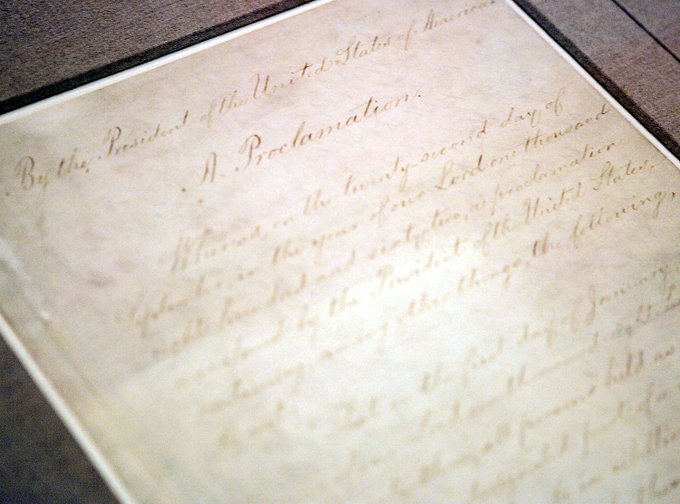 By the President of the United States of America:
A Proclamation.
Whereas, on the twenty-second day of
September, in the year of our Lord one thousand
eight hundred and sixty-two, a proclamation
was issued by the President of the United States,
containing, among other things, the following,
to wit: "That on the first day of January,
of our Lord one thousand eight
all persons held as
designated part of a
in rebellion